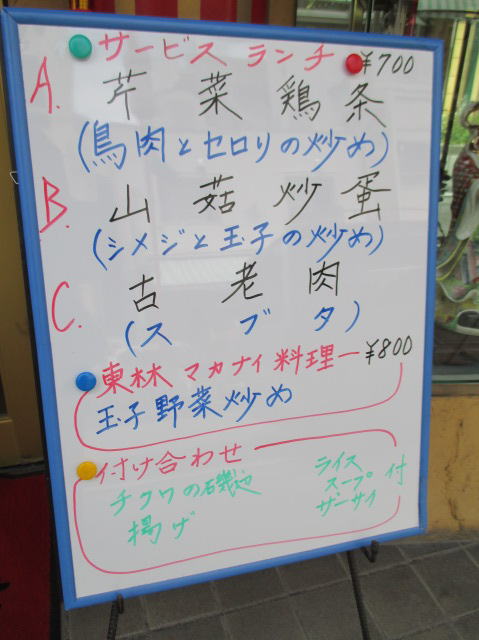 サービスランチ ¥700
A. 芹菜鶏条
(鳥肉とセロリの炒め)
B. 山菇炒蛋
(シメジと玉子の炒め)
C. 古老肉
(スブタ)
東林マカナイ料理 ¥800
玉子野菜炒め
付け合わせ
チクワの磯辺
揚げ
ライス
スープ付
ザーサイ